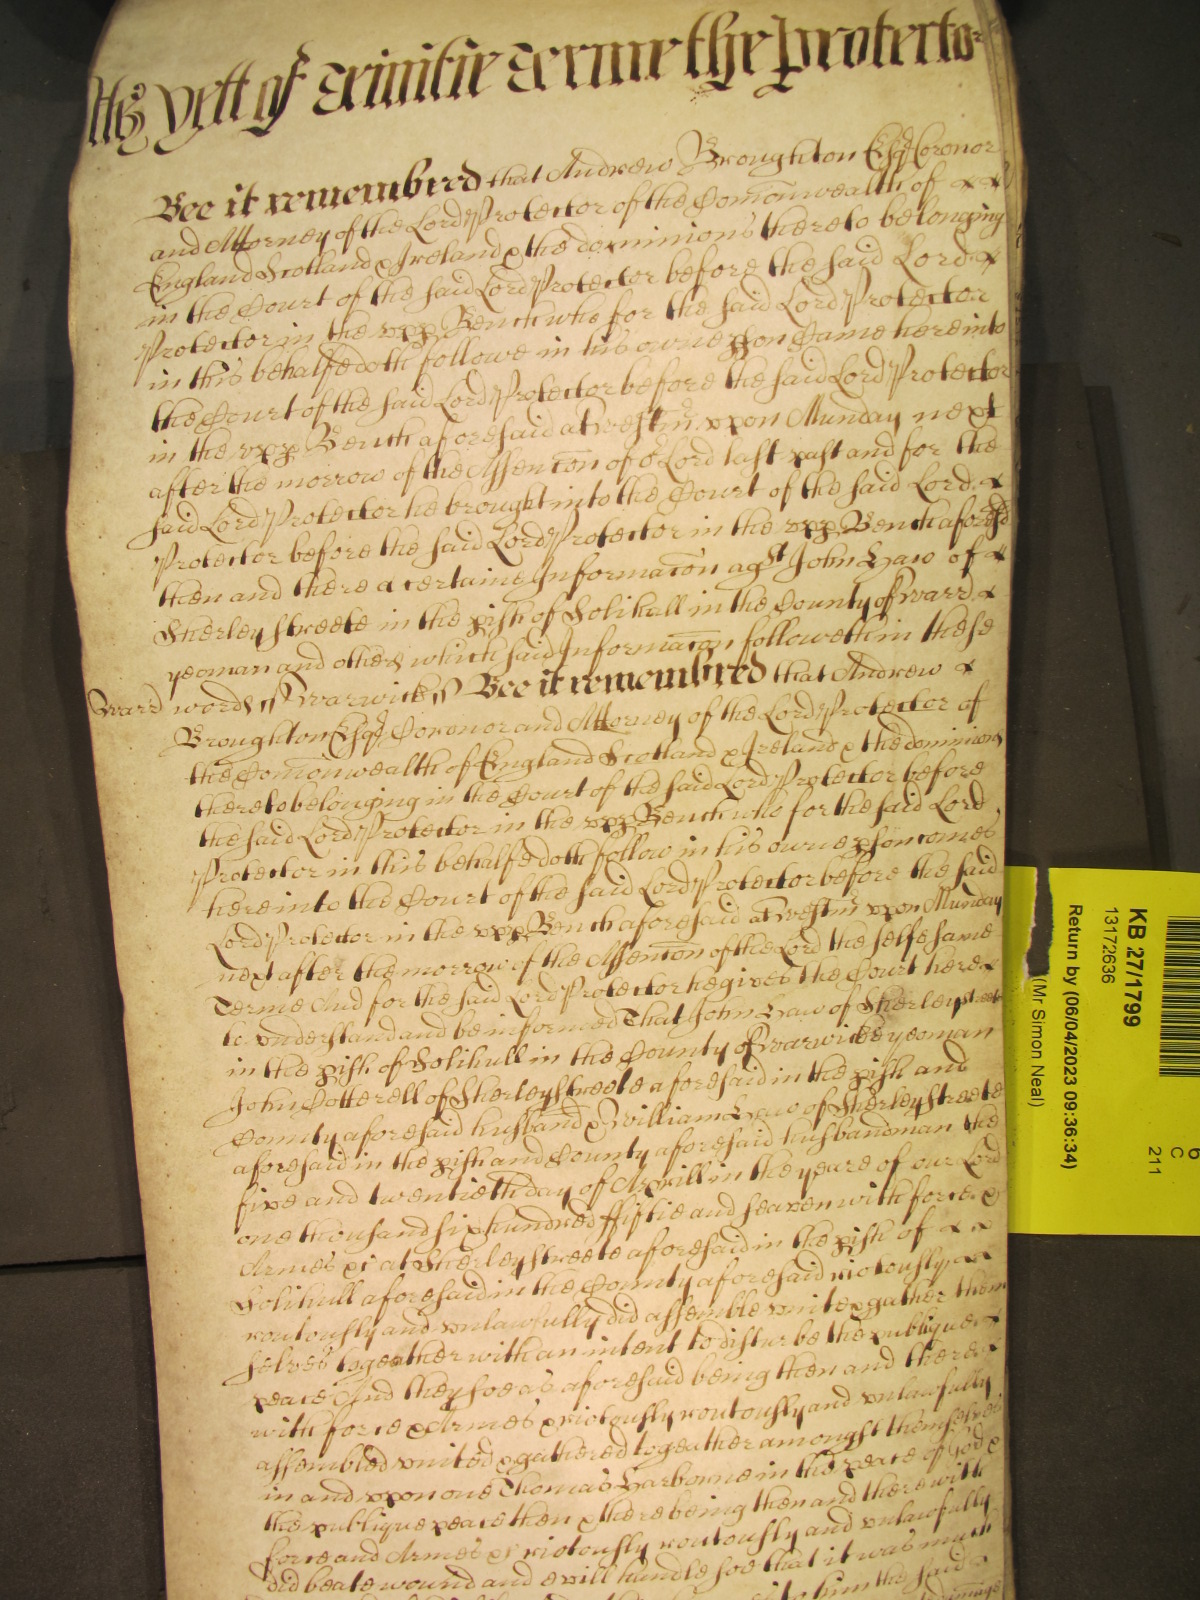 As yett of Trinitie Terme the Protecto=
Bee it remembred that Andrew Broughton Esqr Coronor
and Attorney of the Lord Protector of the Comonwealth of
England Scotland & Ireland & the dominions thereto belonging
in the Court of the said Lord Protector before the said Lord
Protector in the upp Bench who for the said Lord Protector
in this behalfe doth followe in his owne pson Came here into
the Court of the said Lord Protector before the said Lord Protector
in the upp Bench aforesaid at Westm upon Munday next
after the morrow of the Assencon of or Lord last past and for the
said Lord Protector he brought into the Court of the said Lord
Protector before the said Lord Protector in the upp Bench aforesd
then and there a certaine Informacon agst John Haw of
Sherley streete in the pish of Solihull in the County of Warr
yeoman and others which said Informacon followeth in these
Warr words ss Warwick ss Bee it remembred that Andrew
Broughton Esqr Coronor and Attorney of the Lord Protector of
the Comonwealth of England Scotland & Ireland & the dominions
thereto belonging in the Court of the said Lord Protector before
the said Lord Protector in the upp Bench who for the said Lord
Protector in this behalfe doth follow in his owne pson comes
here into the Court of the said Lord Protector before the said
Lord Protector in the upp Bench aforesaid at Westm upon Munday
next after the morrow of the Assencon of the Lord the selfe same
Terme And for the said Lord Protector he gives the Court here
to understand and be informed That John Haw of Sherley streete
in the pish of Solihull in the County of Warwick yeoman
John Cotterell of Sherley Streete aforesaid in the pish and
County aforesaid husband & William Haw of Sherley streete
aforesaid in the pish and County aforesaid husbandman the
five and twentieth day of Aprill in the yeare of our Lord
one thousand six hundred ffiftie and seaven with force &
Armes &c at Sherley streete aforesaid in the pish of
Solihull aforesaid in the County aforesaid riotously
routously and unlawfully did assemble unite & gather them
selves together with an intent to disturbe the publique
peace And they soe as aforesaid being then and there
with force & Armes & riotously routously and unlawfully
assembled united & gathered togeather amongst themselves
in and upon one Thomas Harborne in the peace of God &
the publique peace then & there being then and there with
force and Armes &c riotously routously and unlawfully
did beate wound and evill handle soe that it was much
him the said
KB 27/1799
13172636
Return by (06/04/2023 09:36:34)
(Mr Simon Neal)
6
C
211